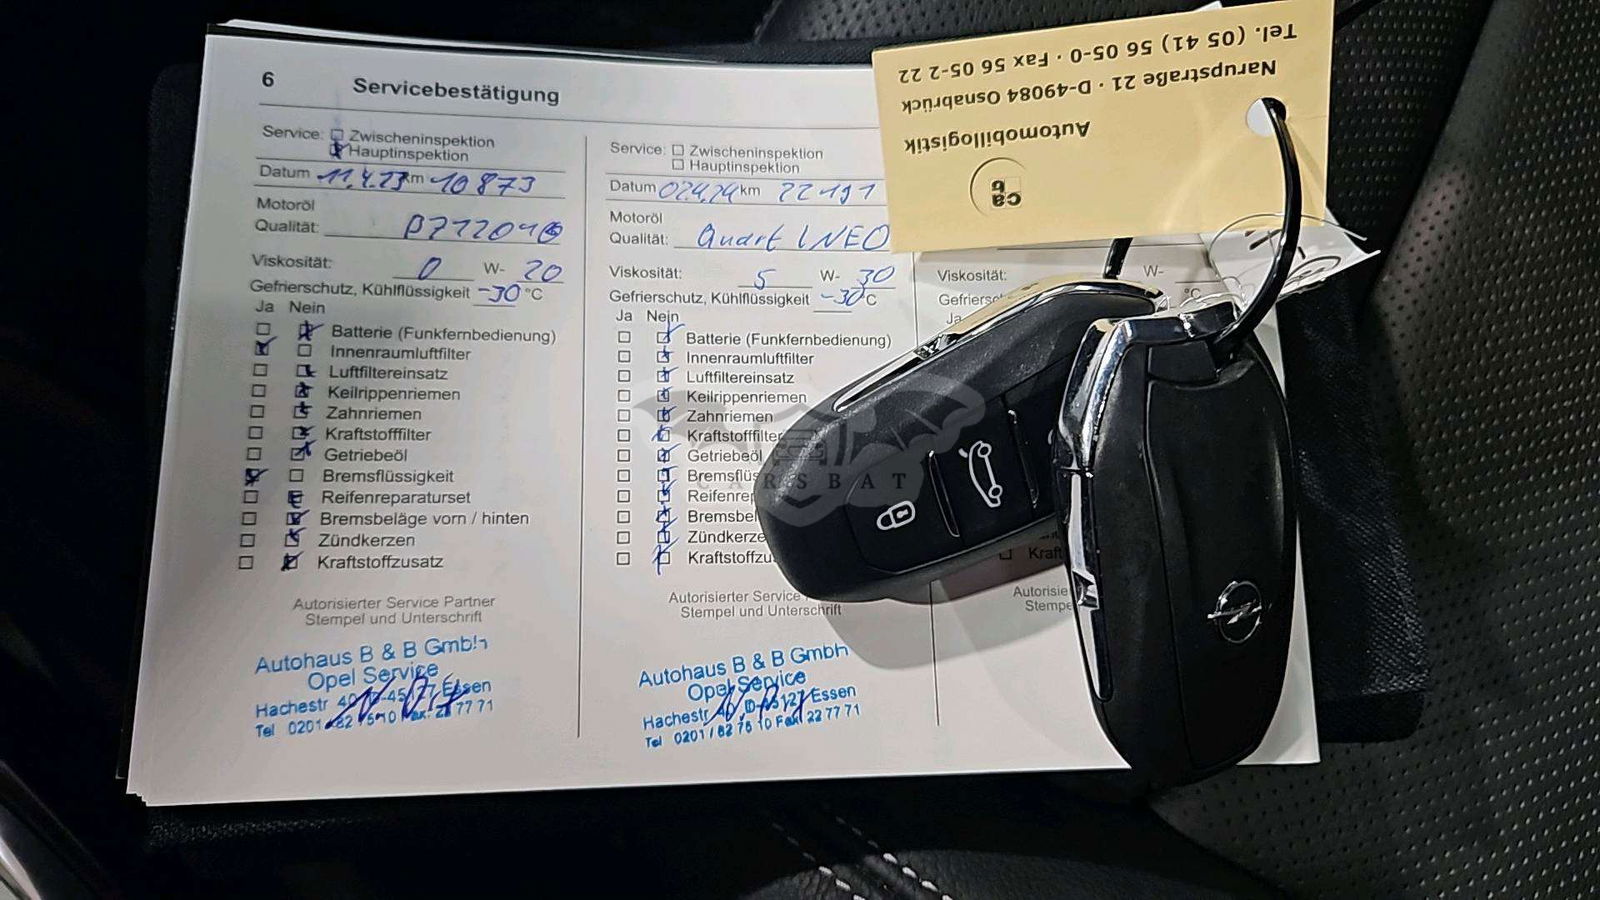 6 Servicebestätigung
Service: Zwischeninspektion
Hauptinspektion
Datum 11.4.23 km 10873
Motoröl
Qualität: B712010
Viskosität: 0 W- 20
Gefrierschutz, Kühlflüssigkeit -30 °C
Ja Nein
Batterie (Funkfernbedienung)
Innenraumluftfilter
Luftfiltereinsatz
Keilrippenriemen
Zahnriemen
Kraftstofffilter
Getriebeöl
Bremsflüssigkeit
Reifenreparaturset
Bremsbeläge vorn / hinten
Zündkerzen
Kraftstoffzusatz
Autorisierter Service Partner
Stempel und Unterschrift
Autohaus B & B GmbH
Opel Service
Hachestr Essen
Tel 0201
Service: Zwischeninspektion
Hauptinspektion
Datum 02.4.24 km 22191
Motoröl
Qualität: Quart INEO
Viskosität: 5 W- 30
Gefrierschutz, Kühlflüssigkeit -30 °C
Ja Nein
Batterie (Funkfernbedienung)
Innenraumluftfilter
Luftfiltereinsatz
Keilrippenriemen
Zahnriemen
Kraftstofffilter
Getriebeöl
Bremsflüs
Reifenrep
Bremsbel
Zündkerze
Kraftstoffzu
Autorisierter Service
Stempel und Unterschrift
Autohaus B & B GmbH
Opel Service
Hachestr Essen
Tel 0201 / 82 76 10 Fax 22 77 71
Viskosität: W-
Gefriersc °C
Ja
Kraft
Autorisie
Stempe
CARSBAT
cab
Automobillogistik
Narupstraße 21 · D-49084 Osnabrück
Tel. (05 41) 56 05-0 · Fax 56 05-2 22